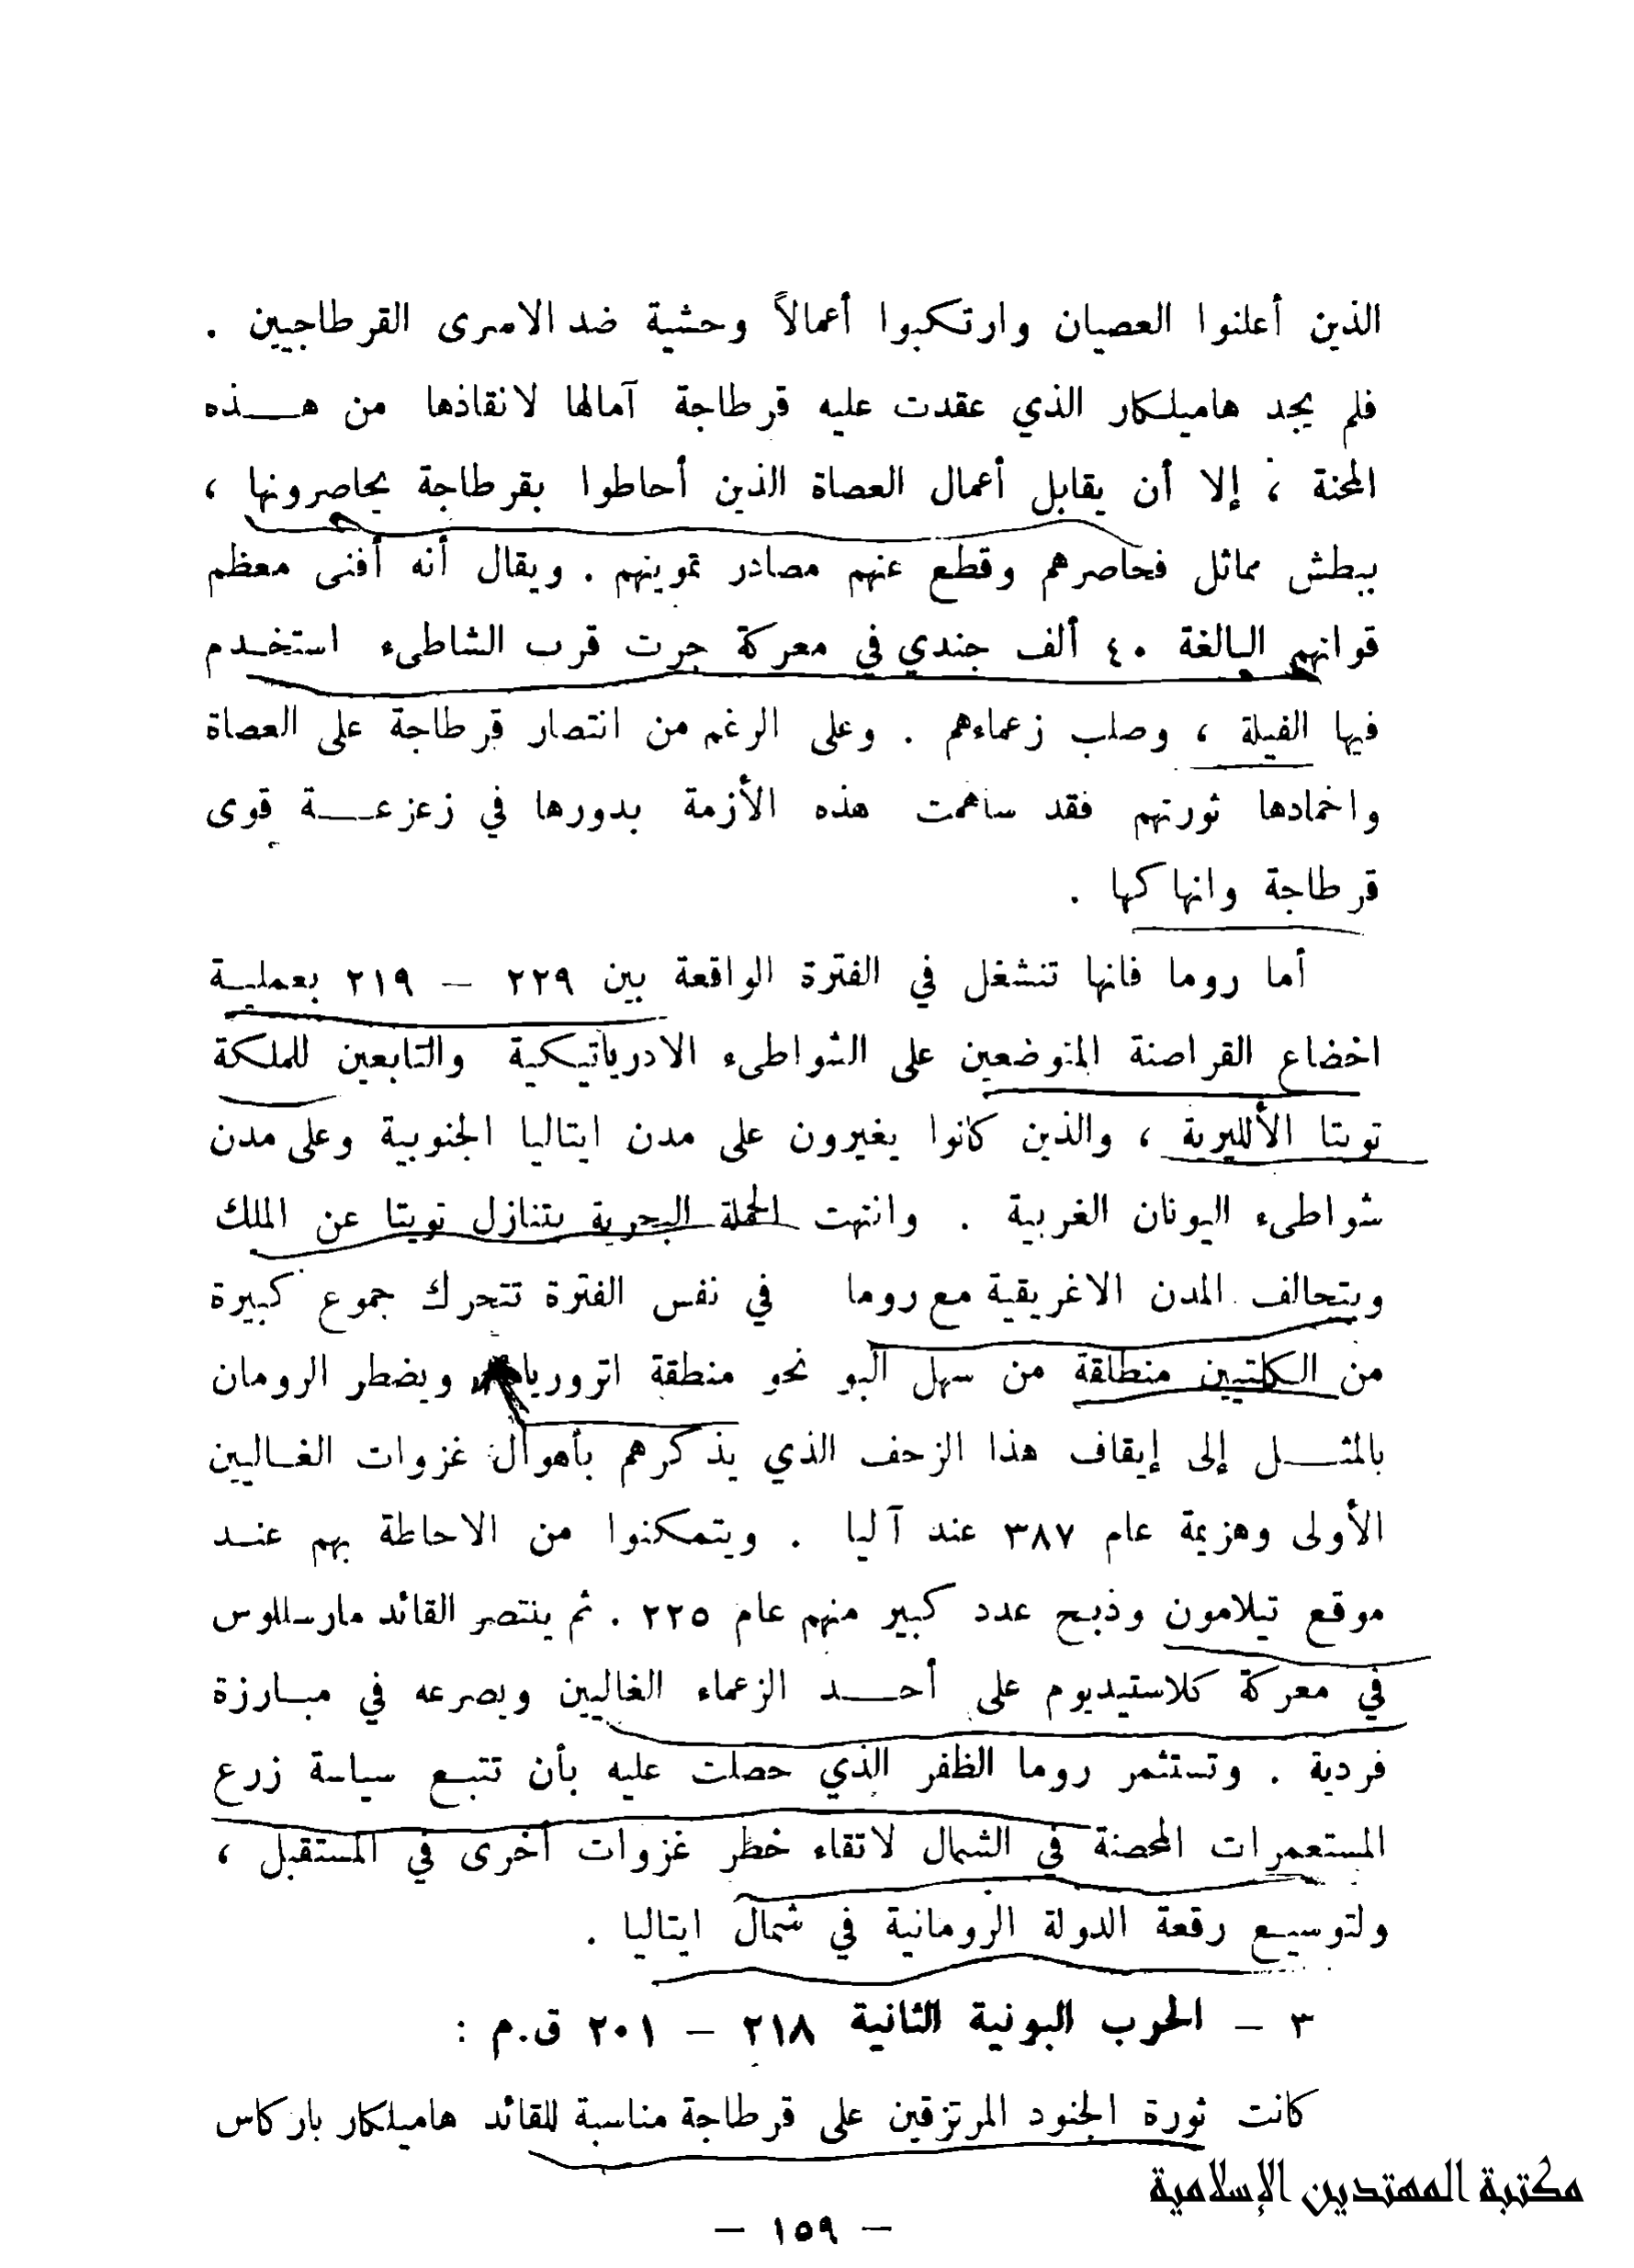 الذين أعلنوا العصيان وارتكبوا أعمالاً وحشية ضد الاسرى القرطاجيين .
فلم يجد هاميلكار الذي عقدت عليه قرطاجة آمالها لانقاذها من هـــذه
المحنة ، إلا أن يقابل أعمال العصاة الذين أحاطوا بقرطاجة يحاصرونها ،
ببطش مماثل فحاصرهم وقطع عنهم مصادر تموينهم . ويقال أنه أفنى معظم
قواتهم البالغة ٤٠ ألف جندي في معركة جرت قرب الشاطىء استخدم
فيها الفيلة ، وصلب زعماءهم . وعلى الرغم من انتصار قرطاجة على العصاة
واخمادها ثورتهم فقد ساهمت هذه الأزمة بدورها في زعزعـــة قوى
قرطاجة وانهاكها .
أما روما فانها تنشغل في الفترة الواقعة بين ٢٢٩ – ٢١٩ بعمليـة
اخضاع القراصنة المتوضعين على الشواطىء الادرياتيكية والتابعين للملكة
تويتا الألليرية ، والذين كانوا يغيرون على مدن ايتاليا الجنوبية وعلى مدن
شواطىء اليونان الغربية . وانتهت الحملة البحرية بتنازل تويتا عن الملك
وبتحالف المدن الاغريقية مع روما في نفس الفترة تتحرك جموع كبيرة
من الكلتيين منطلقة من سهل البو نحو منطقة اتروريا ويضطر الرومان
بالمثــــل إلى إيقاف هذا الزحف الذي يذكرهم بأهوال غزوات الغـاليين
الأولى وهزيمة عام ٣٨٧ عند آليا . ويتمكنوا من الاحاطة بهم عنـد
موقع تيلامون وذبح عدد كبير منهم عام ٢٢٥ . ثم ينتصر القائد مارسللوس
في معركة كلاستيديوم على أحـــد الزعماء الغاليين ويصرعه في مبـارزة
فردية . وتستثمر روما الظفر الذي حصلت عليه بأن تتبـع سياسة زرع
المستعمرات المحصنة في الشمال لاتقاء خطر غزوات أخرى في المستقبل ،
ولتوسيـع رقعة الدولة الرومانية في شمال ايتاليا .
٣ – الحرب البونية الثانية ٢١٨ – ٢٠١ ق.م :
كانت ثورة الجنود المرتزقين على قرطاجة مناسبة للقائد هاميلكار باركاس
مكتبة المهتدين الإسلامية
– ١٥٩ –